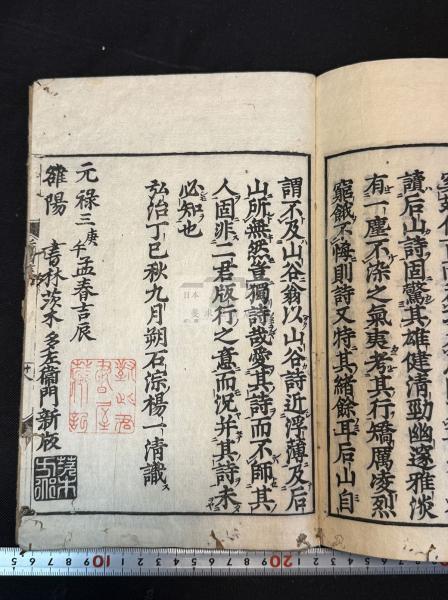 讀后山詩固驚其雄健清勁幽邃雅淡
有一塵不染之氣夷考其行矯厲凌烈
窮餓不悔則詩又特其緒餘耳后山自
謂不及山谷翁以山谷詩近浮薄及后
山所無然豈獨詩哉愛其詩而不師其
人固非二君版行之意而況并其詩未
必知也
弘治丁巳秋九月朔石淙楊一清識
元祿三庚午孟春吉辰
雒陽 書林茨木多左衞門新版